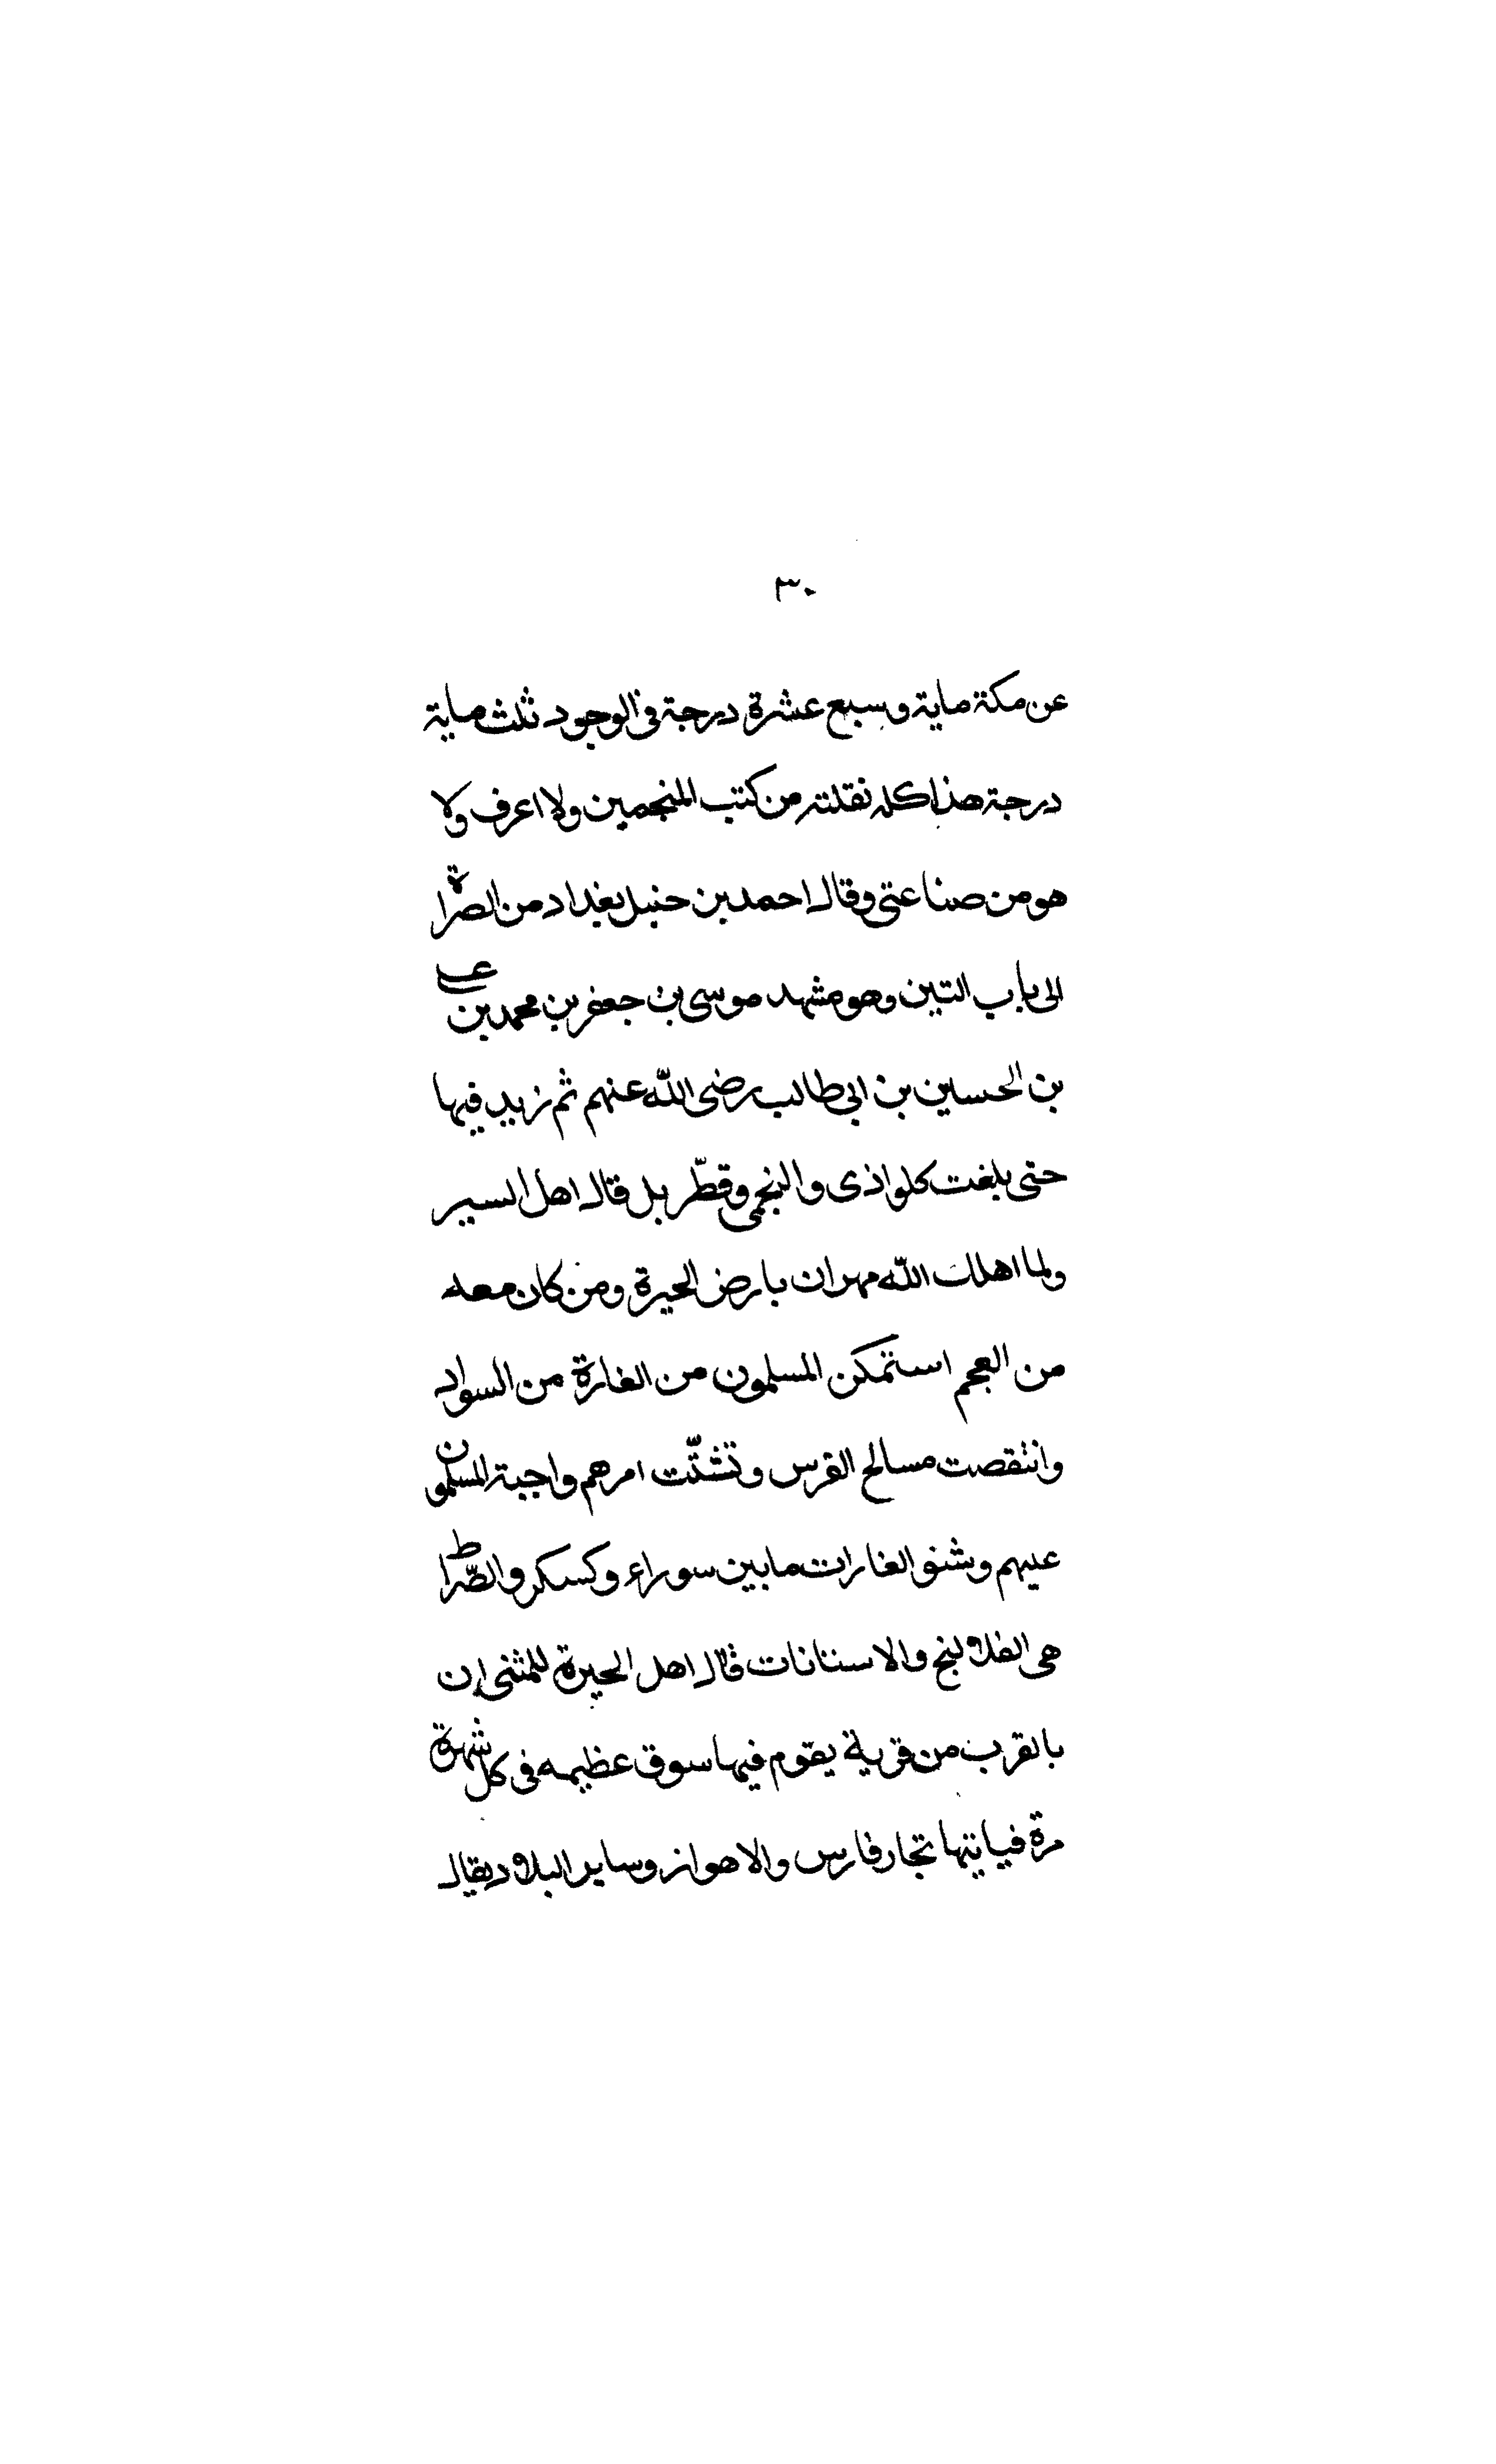 ٣٠
عن مكة ماية وسبع عشرة درجة فى الوجود ثلث ماية
درجة هذا كله نقلته من كتب المنجمين ولا اعرف ولا
هو من صناعتى وقال احمد بن حنبل بغداد من الصراة
الى باب التين وهو مشهد موسى بن جعفر بن محمد بن على
بن الحسين بن ابى طالب رضى الله عنهم ثم زيد فيها
حتى بلغت كلواذى والنجمى وقطّربل قال اهل السير
ولما اهلك الله مهران بارض الحيرة ومن كان معه
من العجم استمكن المسلمون من الغارة من السواد
وانتقصت مسالح الفرس وتشتّت امرهم واجبة المسلمون
عليهم وشنو الغارات مابين سوراء وكسكر والصّراط
هى الفلاليج والاستانات قال اهل الحيرة للمثنى ان
بالقرب من قرية يقوم فيها سوق عظيمه فى كل شهرة
مرة فياتيها تجار فارس والاهواز وساير البلاد يقال